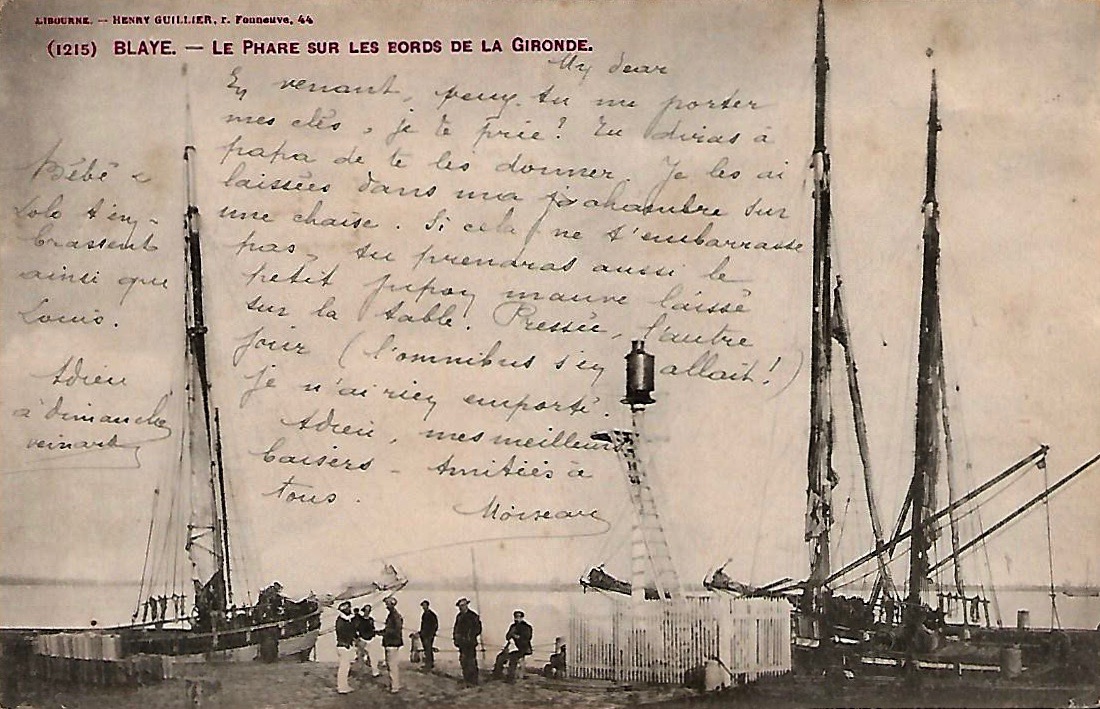 LIBOURNE. — HENRY GUILLIER, r. Fonneuve, 44
(1215) BLAYE. — LE PHARE SUR LES BORDS DE LA GIRONDE.
My dear
En venant, peux-tu me porter
mes clés, je te prie? Tu diras à
papa de te les donner. Je les ai
laissées dans ma chambre sur
une chaise. Si cela ne t'embarrasse
pas, tu prendras aussi le
petit jupon mauve laissé
sur la table. Pressée, l'autre
jour (l'omnibus s'en allait!)
je n'ai rien emporté.
Adieu, mes meilleurs
baisers - Amitiés à
tous.
Bébé &
Lolo t'em-
brassent
ainsi que
Louis.
Adieu
à dimanche
veinarde